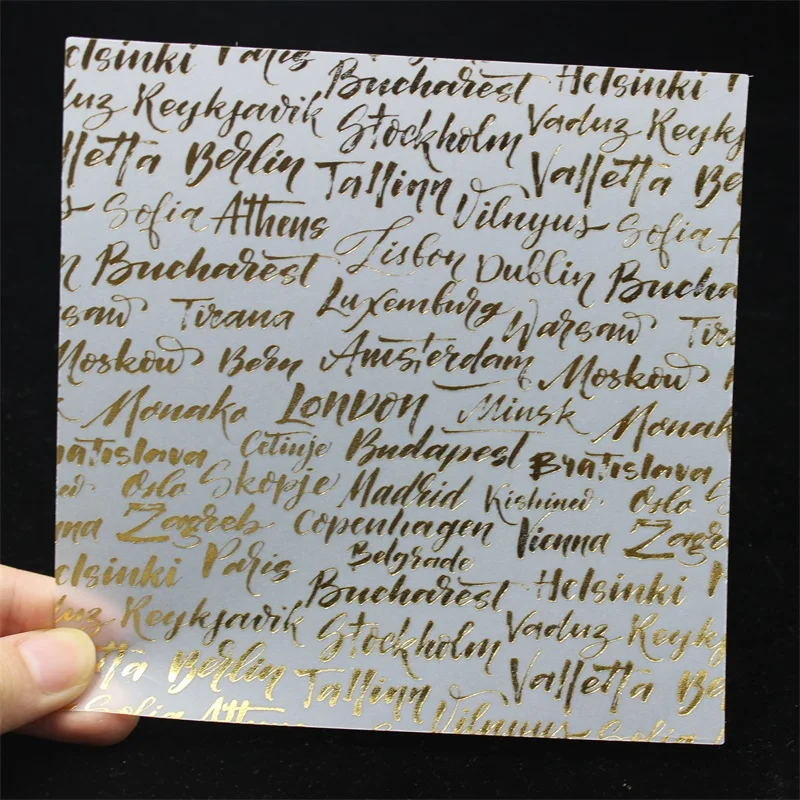 elsinki Paris Bucharest Helsinki
duz Reykjavik Stockholm Vaduz Reykj
lletta Berlin Tallinn Valletta Be
Sofia Athens Vilnyus Sofia A
n Bucharest Lisbon Dublin Bucha
saw Tirana Luxemburg Warsaw Tir
Moskow Bern Amsterdam Moskow
Monako London Minsk Monak
ratislava Cetinje Budapest Bratislava
ned Oslo Skopje Madrid Kishined Oslo S
nna Zagreb Copenhagen Vienna Zagr
elsinki Paris Belgrade
Bucharest Helsinki
duz Reykjavik Stockholm Vaduz Reykj
tta Berlin Tallinn Valletta Be
Sofia Athens Vilnyus Sofia